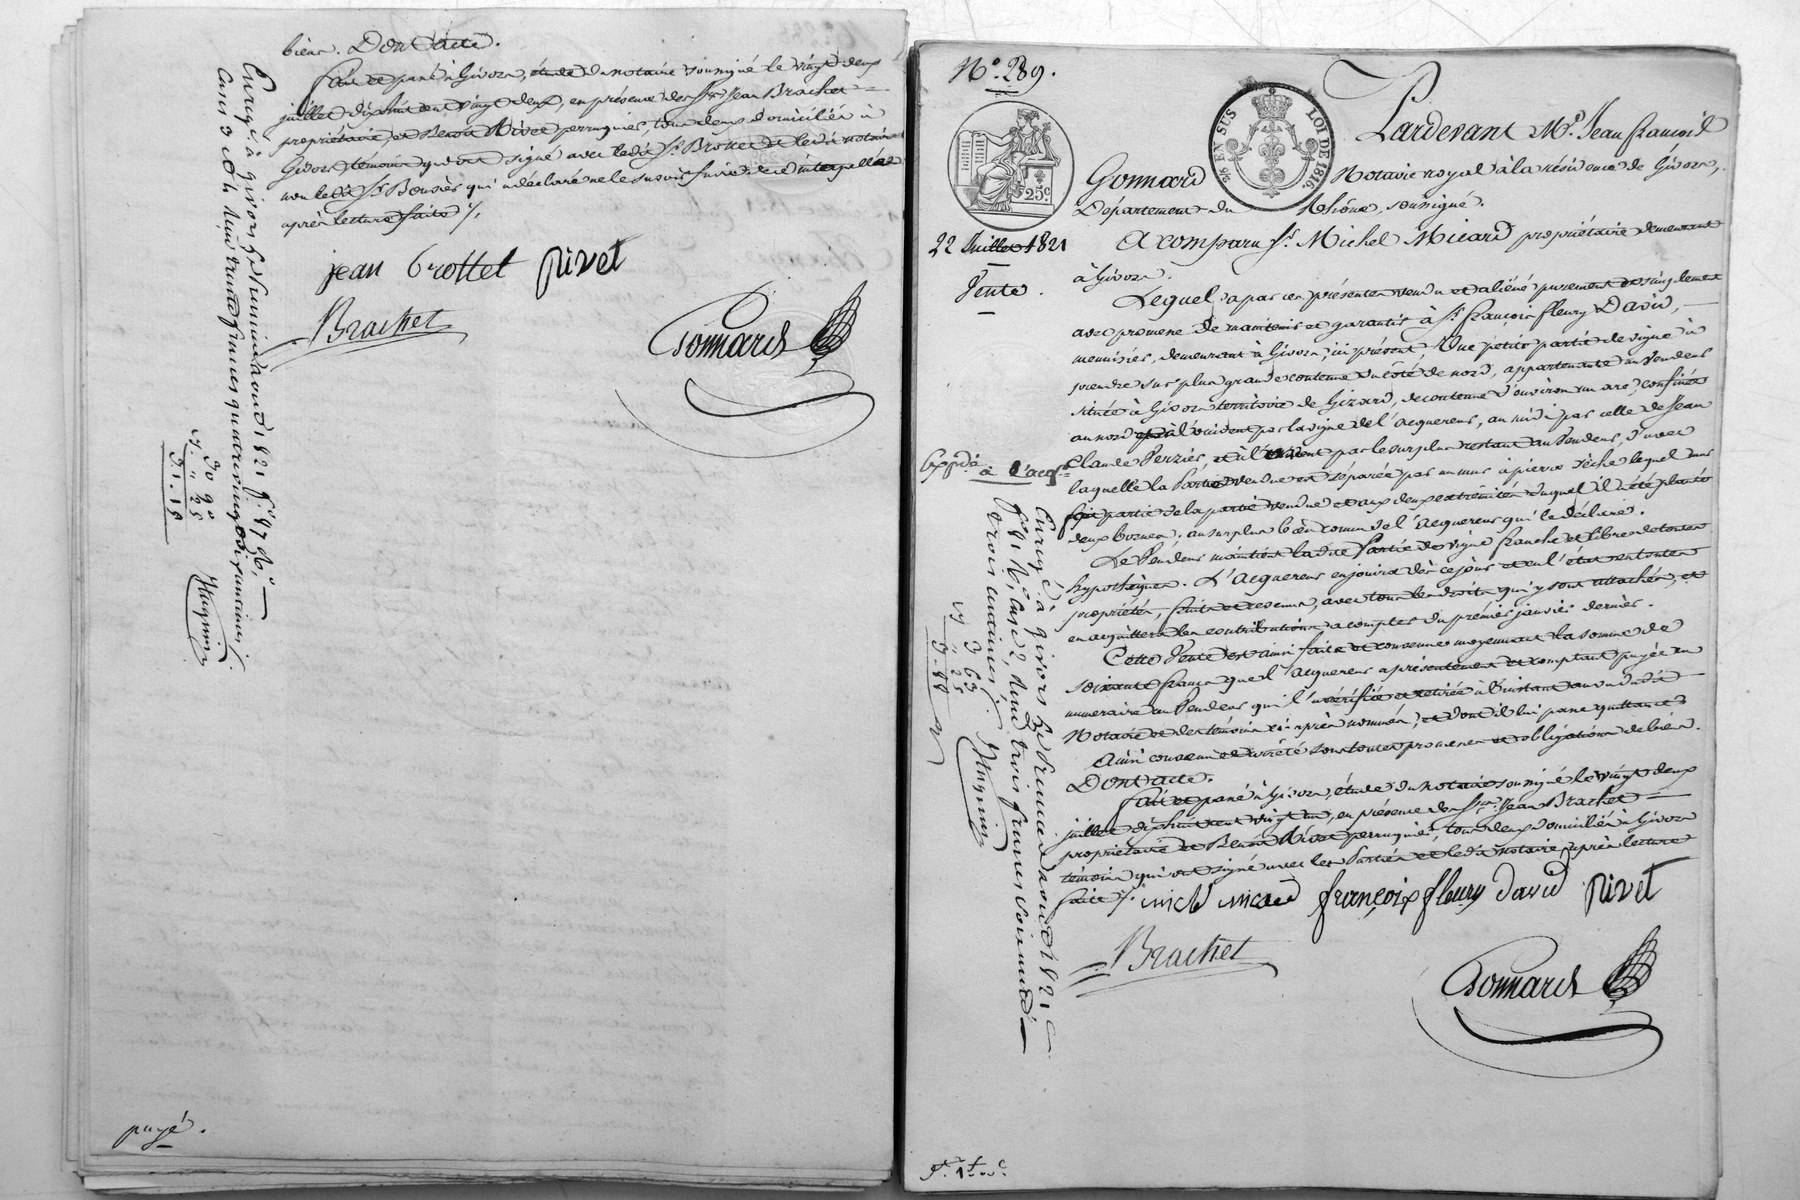 biens. Dont acte.
Fait et passé à Givors, étude du notaire soussigné le vingt deux
juillet dix huit cent vingt deux, en présence des Srs Jean Brachet
propriétaire, et Benoit Rivet perruquier, tous deux domiciliés à
Givors témoins qui ont signé avec ledit Sr Brottet et ledit notaire
non ledit Sr qui a déclaré ne le savoir faire de ce interpellé
après lecture faite ./.
jean Brottet Rivet
Brachet
Gonnard
Enregé à givors le premier aout 1821 fo 97 Ro
Cases 3 et 4 reçu trente francs quatre vingt dix centimes
30 90
" 25
Huguin
payé.
No. 289.
25c
EN SUS
LOI DE 1816.
22 Juillet 1821
Vente.
Pardevant Me. Jean françois
Gonnard Notaire royal à la résidence de Givors,
Département du Rhône, soussigné.
A comparu Sr. Michel Micard propriétaire demeurant
à Givors.
Lequel, a par ces présentes vendu et aliéné purement et simplement
avec promesse de maintenir et garantir à Sr. françois fleury David,
menuisier, demeurant à Givors, ici présent, Une petite partie de vigne à
prendre sur plus grande contenue du côté de nord, appartenante au Vendeur
située à Givors territoire de Gizard, de contenue d'environ un are, confinée
au nord et à l'occident par la vigne de l'acquereur, au midi par celle de Jean
Claude Perrier, et à l'orient par le surplus restant au Vendeur, d'avec
laquelle la Partie vendue est séparée par un mur à pierre sèche lequel mur
fait partie de la partie vendue et aux deux extrémités duquel il a été planté
deux bornes, au surplus bien connu de l'acquereur qui le déclare.
Le Vendeur maintient ladite Partie de vigne franche et libre de toutes
hypothèques. L'acquereur en jouira dès ce jour et en l'état en toute
propriété, fruits et revenus, avec tous les droits qui y sont attachés, et
en acquittera les contributions à compter du premier janvier dernier.
Cette Vente est ainsi faite et convenue moyennant la somme de
soixante francs que l'acquereur a présentement et comptant payée en
numeraire au Vendeur qui l'a vérifiée et retirée à l'instant au vu dudit
Notaire et des témoins ci-après nommés, et dont il lui passe quittance.
Ainsi convenu et arrêté sous toutes promesses et obligations de biens.
Dont acte.
Fait et passé à Givors, étude du notaire soussigné le vingt deux
juillet dix huit cent vingt un, en présence des Srs. Jean Brachet
propriétaire et Benoit Rivet perruquier, tous deux domiciliés à Givors
témoins qui ont signé avec les Parties et ledit notaire, après lecture
faite ./. michl micard françois fleury david Rivet
Brachet
Gonnard
Expédié
à l'acqr.
Enregé à givors le premier aout 1821
fo 98 Ro, case 2, reçu trois francs soixante
trois centimes.
3 63
" 25
3.88
Huguin